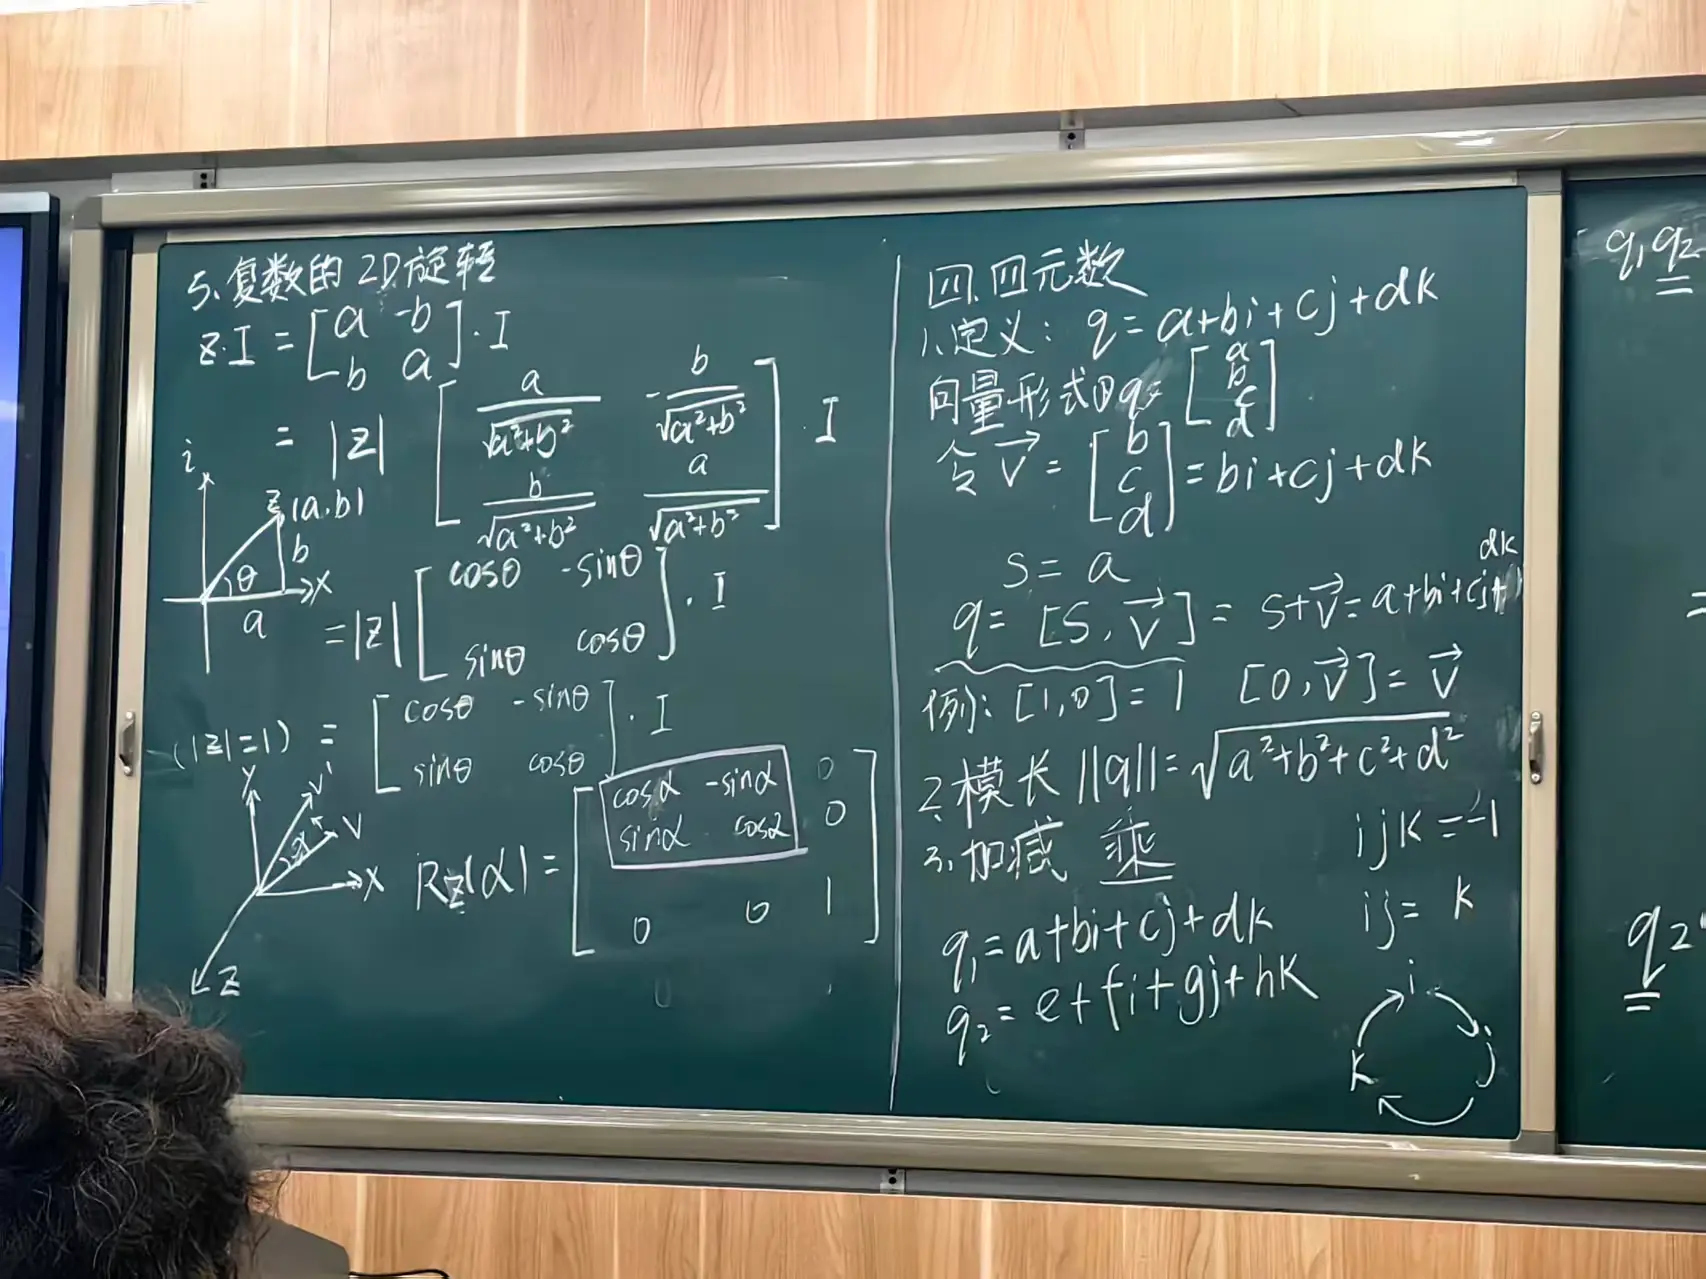 5、复数的 2D旋转
z·I = [a -b; b a]·I
= |z| [a/√(a²+b²) -b/√(a²+b²); b/√(a²+b²) a/√(a²+b²)]·I
i
z(a,b)
b
θ
x
a
= |z| [cosθ -sinθ; sinθ cosθ]·I
(|z|=1) = [cosθ -sinθ; sinθ cosθ]·I
Y
V'
V
α
X
Z
Rz(α) = [cosα -sinα 0; sinα cosα 0; 0 0 1]
四、四元数
1、定义: q = a+bi+cj+dk
向量形式① q= [a; b; c; d]
令 v⃗ = [b; c; d] = bi+cj+dk
s = a
q = [s, v⃗] = s+v⃗ = a+bi+cj+dk
例: [1,0] = 1 [0,v⃗] = v⃗
2、模长 ||q|| = √(a²+b²+c²+d²)
3、加减 乘
ijk = -1
ij = k
q₁ = a+bi+cj+dk
q₂ = e+fi+gj+hk
i
j
k
q₁q₂
=
q₂